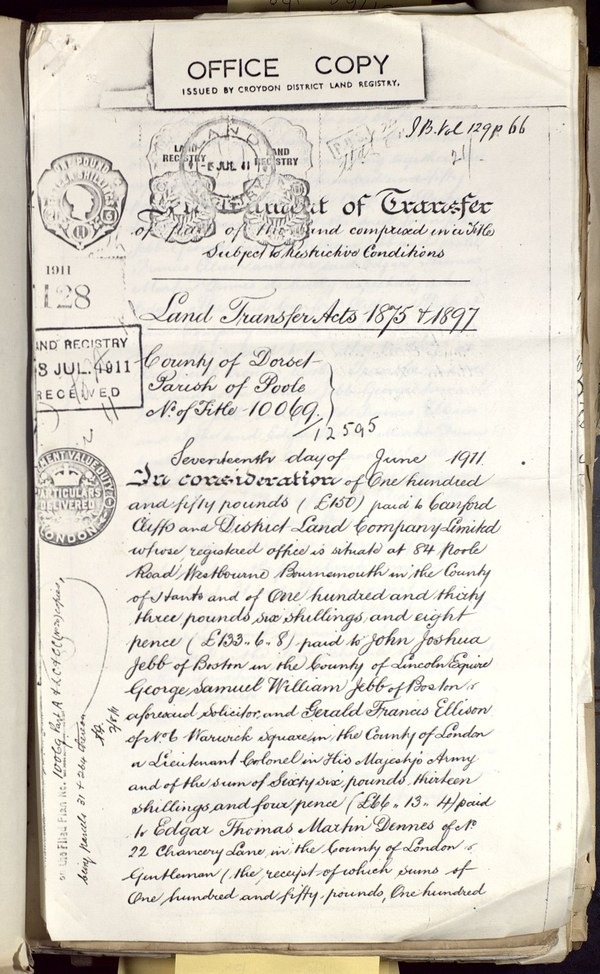 OFFICE COPY
ISSUED BY CROYDON DISTRICT LAND REGISTRY.
J.B. Vol 129 p. 66
21/
LAND REGISTRY
LAND REGISTRY
LAND
JUL. 11
of Transfer
of part of the land comprised in a Title
Subject to Restrictive Conditions
1911
128
Land Transfer Acts 1875 & 1897
LAND REGISTRY
8 JUL. 1911
RECEIVED
County of Dorset
Parish of Poole
No. of Title - 10069.
12595
Seventeenth day of June 1911.
In consideration of One hundred
and fifty pounds (£150) paid to Canford
Cliffs and District Land Company Limited
whose registered office is situate at 84 Poole
Road Westbourne Bournemouth in the County
of Hants and of One hundred and thirty
three pounds six shillings and eight
pence (£133..6..8) paid to John Joshua
Jebb of Boston in the County of Lincoln Esquire
George Samuel William Jebb of Boston
aforesaid Solicitor and Gerald Francis Ellison
of No. 6 Warwick Square in the County of London
a Lieutenant Colonel in His Majestys Army
and of the sum of Sixty six pounds thirteen
shillings and four pence (£66..13..4) paid
to Edgar Thomas Martin Dennes of No.
22 Chancery Lane in the County of London
Gentleman (the receipt of which sums of
One hundred and fifty pounds, One hundred
PARTICULARS
DELIVERED
LONDON
on the Filed Plan No. 10069
being parcels 31 &